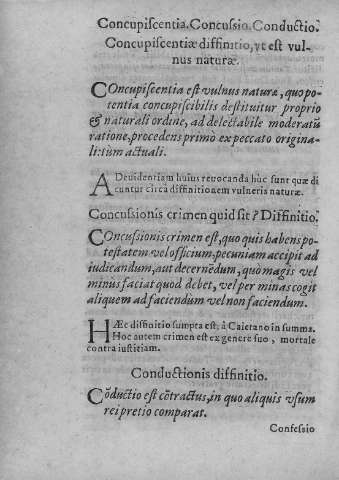 Concupiſcentia. Concuſsio. Conductio.
Concupiſcentiæ diffinitio, vt eſt vul-
nus naturæ.
COncupiſcentia eſt vulnus naturæ, quo po-
tentia concupiſcibilis deſtituitur proprio
& naturali ordine, ad delectabile moderatũ
ratione, procedens primò ex peccato origina-
li: tùm actuali.
AD euidentiam huius reuocanda hùc ſunt quæ di
cuntur circà diffinitionem vulneris naturæ.
Concuſsionis crimen quid ſit? Diffinitio.
COncuſsionis crimen eſt, quo quis habens po-
teſtatem vel officium, pecuniam accipit ad
iudicandum, aut decernẽdum, quo magis vel
minùs faciat quod debet, vel per minas cogit
aliquem ad faciendum vel non faciendum.
HÆc diffinitio ſumpta eſt, à Caietano in summa.
Hoc autem crimen eſt ex genere ſuo, mortale
contra iuſtitiam.
Conductionis diffinitio.
Cõductio eſt cõtractus, in quo aliquis vſum
rei pretio comparat.
Confeſsio